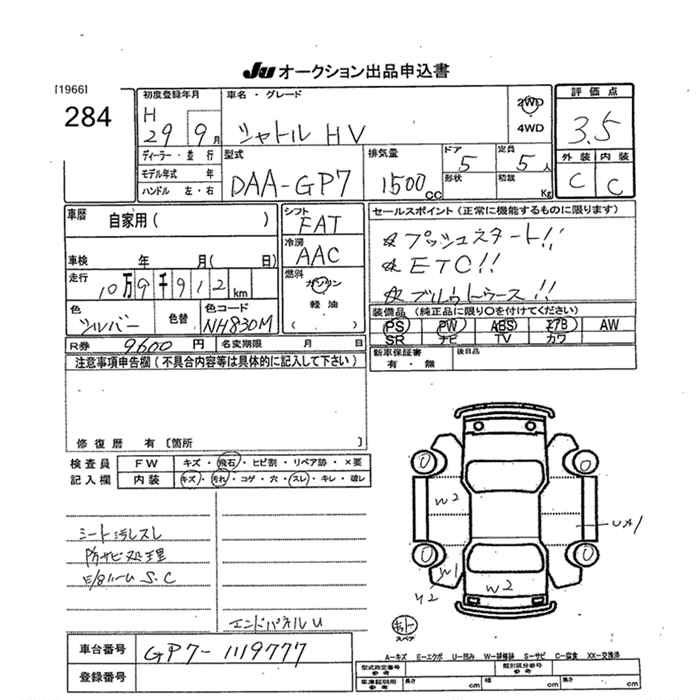 Ju オークション出品申込書
[1966]
284
初度登録年月
H
29 9月
車名・グレード
シャトル HV
2WD
4WD
評価点
3.5
外装 内装
C C
ディーラー・並行
モデル年式 年
ハンドル 左・右
型式
DAA-GP7
排気量
1500cc
ドア
5
形状
定員
5人
積載
Kg
車歴
自家用( )
車検 年 月( 日)
走行
10万9千912km
色
シルバー
色替
色コード
NH830M
シフト
FAT
冷房
AAC
燃料
ガソリン
軽油
( )
セールスポイント(正常に機能するものに限ります)
☆プッシュスタート!!
☆ETC!!
☆ブルゥトゥース!!
装備品(純正品に限り○を付けてください)
PS PW ABS エアB AW
SR ナビ TV カワ
R券 9600円 名変期限 月 日
新車保証書
有・無
後日品
注意事項申告欄(不具合内容等は具体的に記入して下さい)
修復歴 有[箇所 ]
検査員
記入欄
FW キズ・飛石・ヒビ割・リペア跡・×要
内装 キズ・汚れ・コゲ・穴・スレ・キレ・破レ
シート汚レスレ
防サビ処理
S.C
エンドパネルU
W2
W1
W2
Y2
UX1
スペア
A-キズ E-エクボ U-凹み W-補修跡 S-サビ C-腐食 XX-交換済
車台番号 GP7-1119777
登録番号
型式指定番号
参考
類別区分番号
参考
車庫証明用
参考
長さ cm
幅 cm
高さ cm